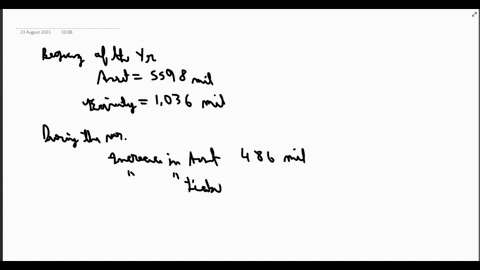 23 August 2021 10:08
Begining of the Yr
Asset = 5598 mil
Equity = 1,036 mil
During the year.
Increase in Asset 486 mil
" " Liab